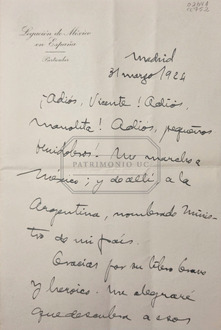 Legación de México
en España
Particular
Madrid
31 marzo 1924
¡Adiós, Vicente! Adiós,
Manolita! Adiós, pequeños
Huidobros! Me marcho a
México; y de allí, a la
Argentina, nombrado Minis-
tro de mi país.
PATRIMONIO UC
Gracias por su libro bravo
y heroico. Me alegraré
que descubra a esos